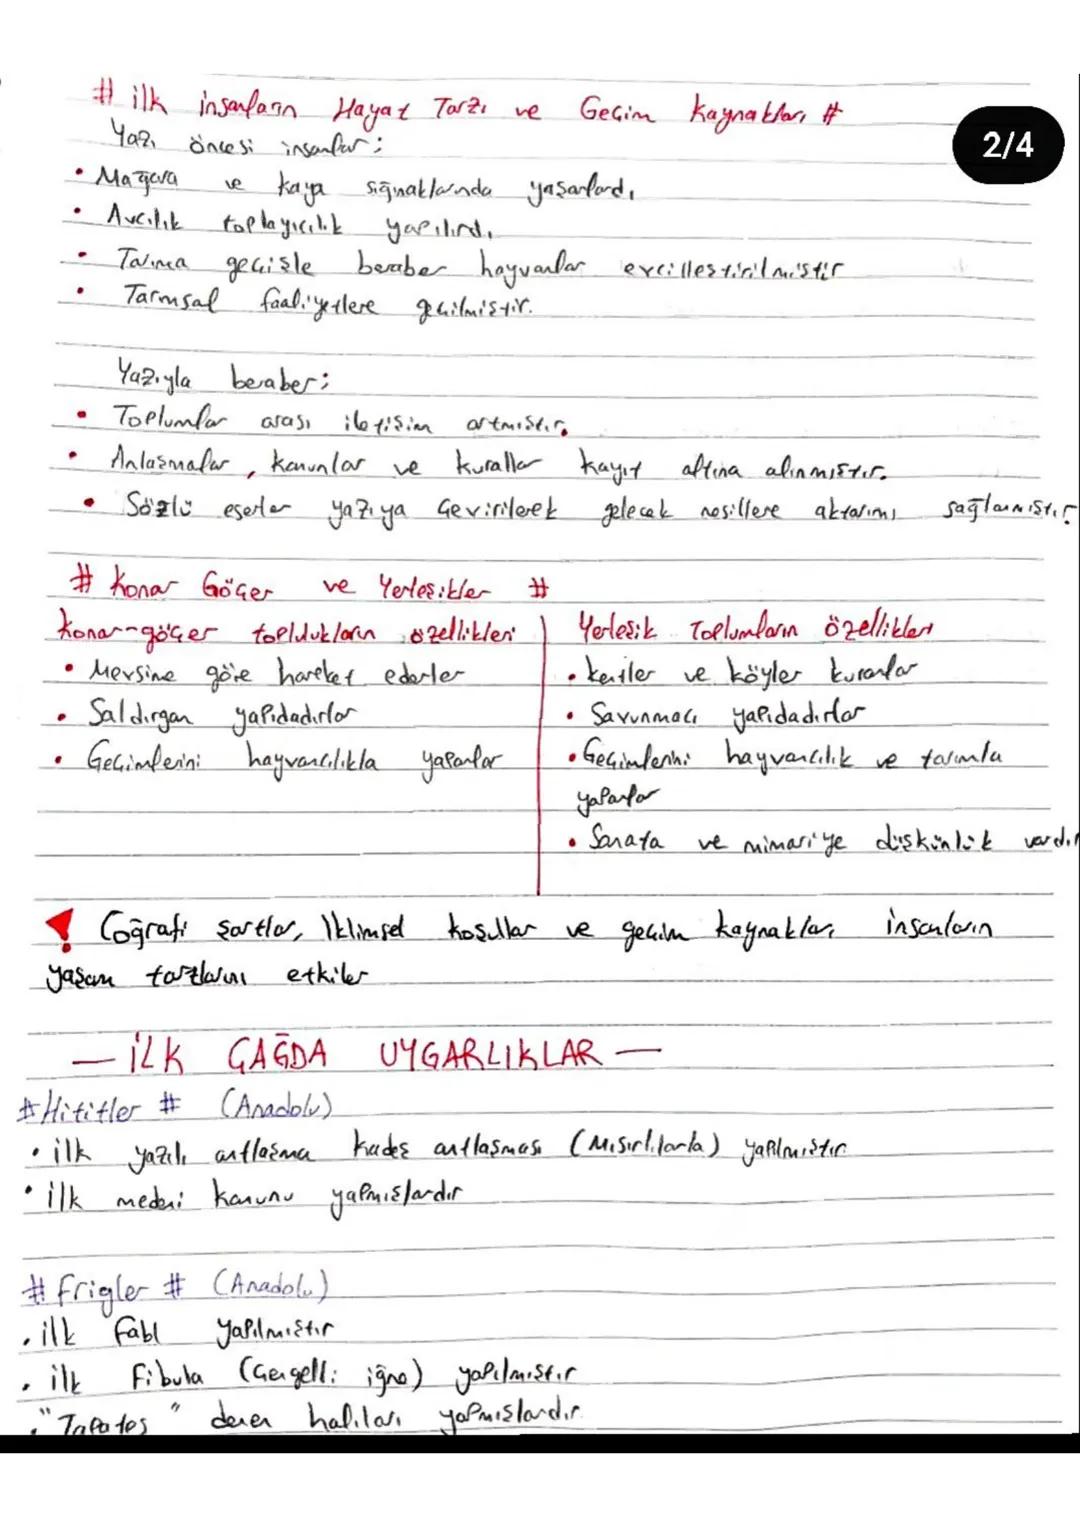 # ilk insanların Hayat Tarzı ve Geçim Kaynakları #
2/4
Yazı öncesi insanlar;
• Mağara ve kaya sığınaklarında yaşarlardı
• Avcılık toplayıcılık yapılırdı.
• Tarıma geçişle beraber hayvanlar evcilleştirilmiştir
• Tarımsal faaliyetlere geçilmiştir.
Yazıyla beraber;
• Toplumlar arası iletişim artmıştır.
• Anlaşmalar, kanunlar ve kurallar kayıt altına alınmıştır.
• Sözlü eserler yazıya çevirilerek gelecek nesillere aktarımı sağlanmıştır
# Konar Göçer ve Yerleşikler #
Konar-göçer toplulukların özellikleri
• Mevsime göre hareket ederler
• Saldırgan yapıdadırlar
• Geçimlerini hayvancılıkla yaparlar
Yerleşik Toplumların özellikleri
• Kentler ve köyler kurarlar
• Savunmacı yapıdadırlar
• Geçimlerini hayvancılık ve tarımla
yaparlar
• Sanata ve mimariye düşkünlük vardır
! Coğrafi şartlar, İklimsel koşullar ve geçim kaynakları insanların
yaşam tarzlarını etkiler
— İLK ÇAĞDA UYGARLIKLAR —
# Hititler # (Anadolu)
• ilk yazılı antlaşma Kadeş antlaşması (Mısırlılarla) yapılmıştır
• ilk medeni kanunu yapmışlardır
# Frigler # (Anadolu)
• ilk Fabl yapılmıştır
• ilk Fibula (Çengelli iğne) yapılmıştır
• "Tapates" denen halıları yapmışlardır.